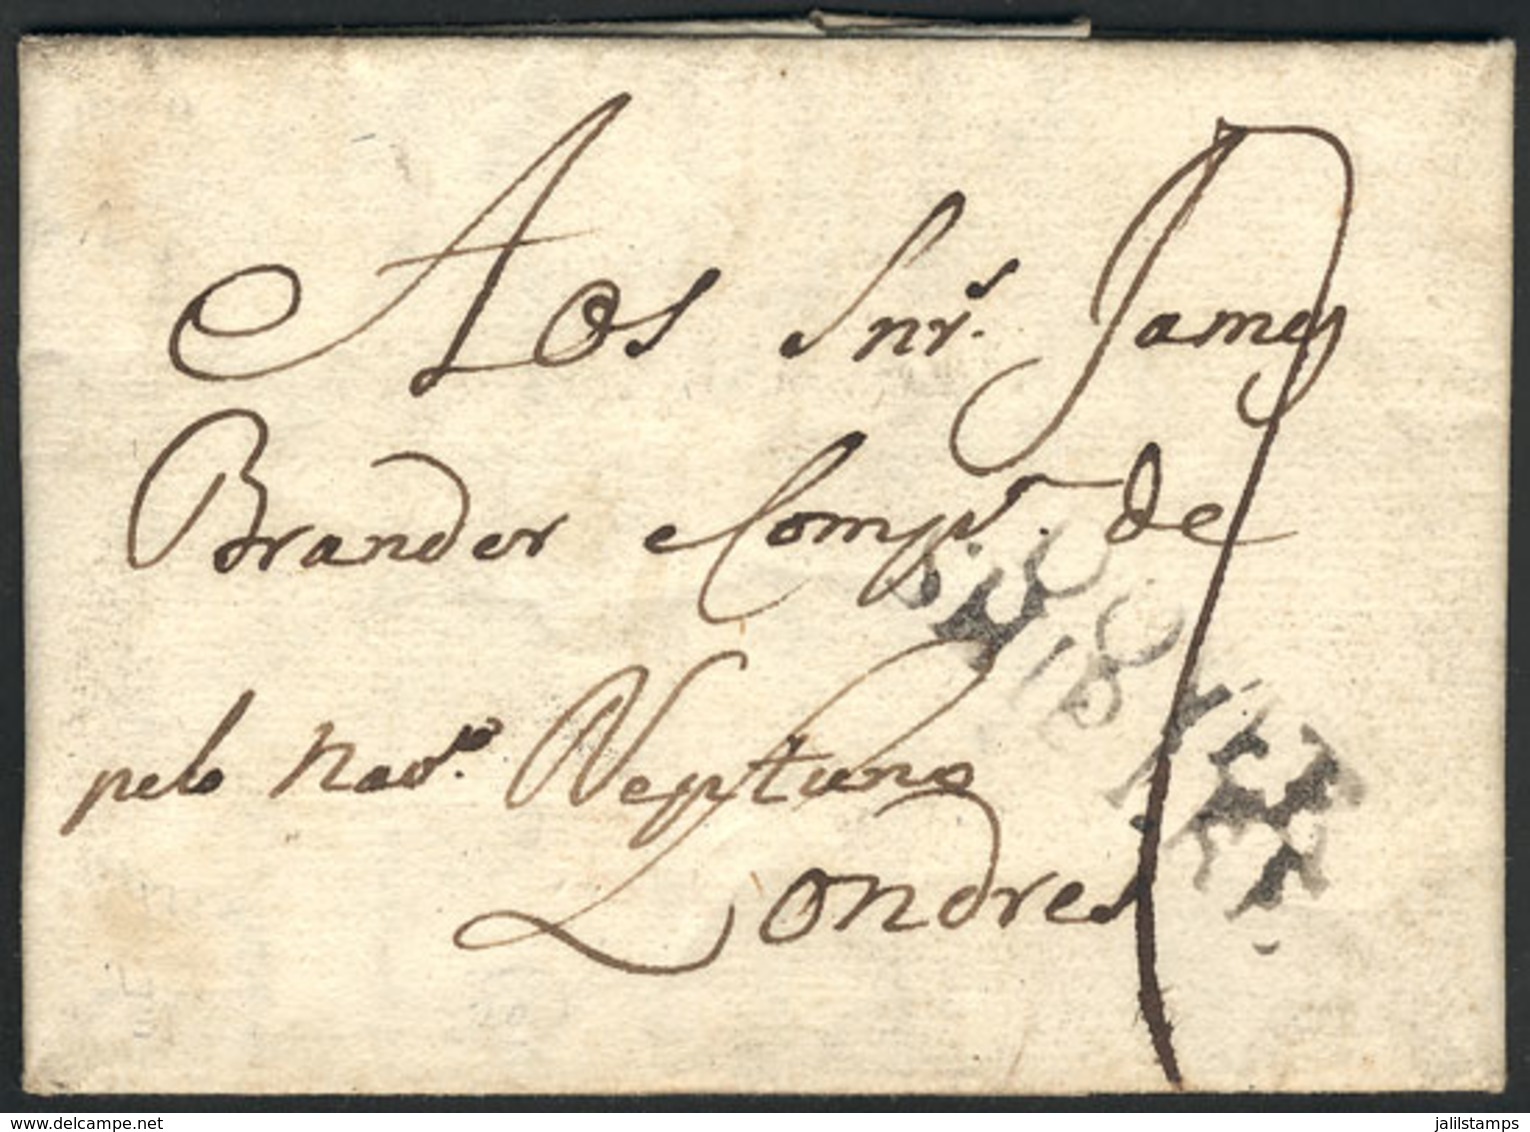 Aos Snr.s James
Brander e Comp.a de
pelo Nav.o Neptuno
Londres
SHIP LRE
www.delcampe.net
jalilstamps